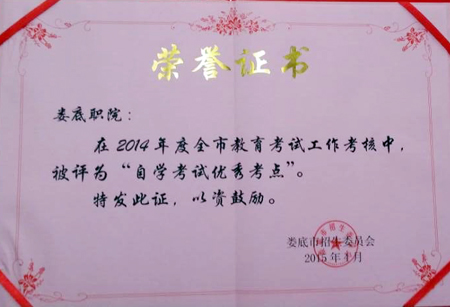 荣誉证书
娄底职院：
在2014年度全市教育考试工作考核中，
被评为“自学考试优秀考点”。
特发此证，以资鼓励。
娄底市招生委员会
2015年 月